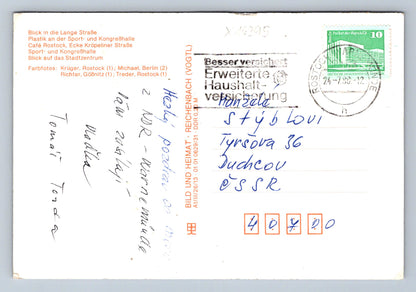 Blick in die Lange Straße
Plastik an der Sport- und Kongreßhalle
Café Rostock, Ecke Kröpeliner Straße
Sport- und Kongreßhalle
Blick auf das Stadtzentrum
Farbfotos: Krüger, Rostock (1), Michael, Berlin (2)
Richter, Gößnitz (1); Treder, Rostock (1)
Besser versichert
Erweiterte
Haushalt-
versicherung
10
Manželé
Stýblovi
Tyršova 36
Duchcov
ČSSR
40720
BILD UND HEIMAT · REICHENBACH (VOGTL)
Hezký pozdrav od
z NDR - Warnemünde
Vám zasílají
Vlaďka
Tomáš